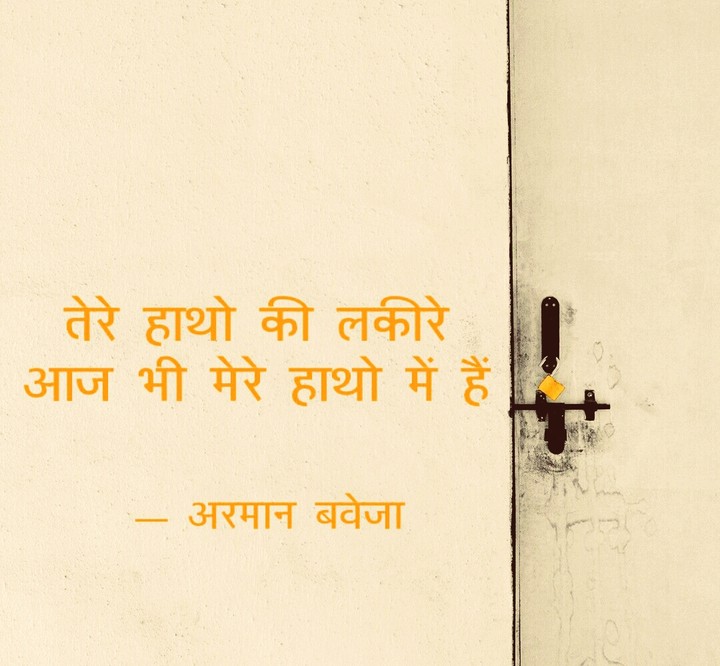 तेरे हाथो की लकीरे
आज भी मेरे हाथो में हैं
— अरमान बवेजा